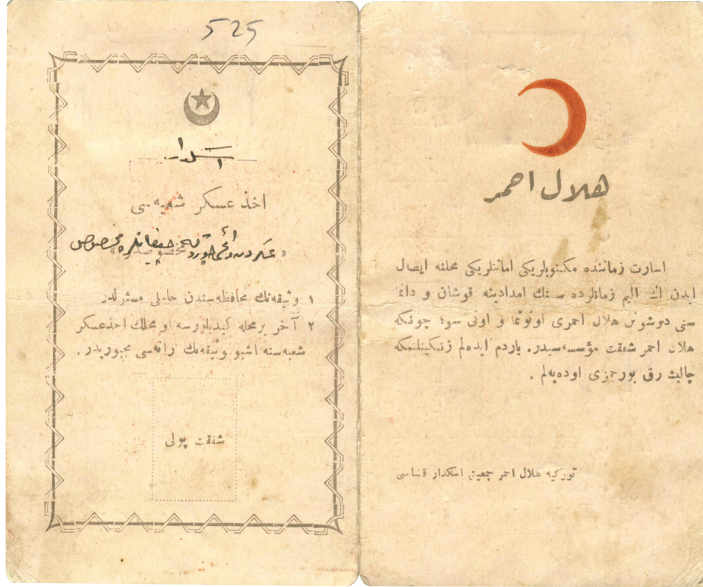 525
اسكدار
اخذ عسكر شعبه‌سى
١ وثيقه‌نك محافظه‌سندن حاملى مسئولدر
٢ آخر بر محله كيديلورسه او محلك اخذ عسكر
شعبه‌سنه اشبو وثيقه‌نك ارائه‌سى مجبوريدر .
شفقت پولى
هلال احمر
اسارت زماننده مكتوبلريكى امانتلريكى محلنه ايصال
ايدن اڭ اليم زمانلرده سنك امداديڭه قوشان و دائما
سنى دوشونن هلال احمرى اونوتما و اونى سو؛ چونكه
هلال احمر شفقت مؤسسه‌سيدر. ياردم ايده‌لم زنكينلنمكه
چاليشه‌رق بورجمزى اوده‌يه‌لم .
توركيه هلال احمر جمعيتى اسكدار قضاسى